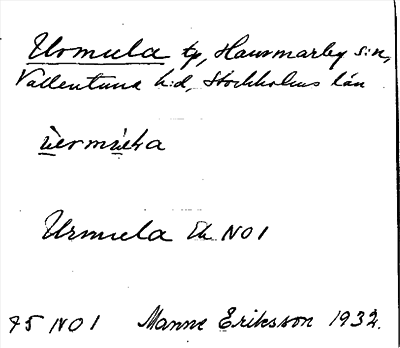 Urmula tp, Hammarby s:n,
Vallentuna h:d, Stockholms län
Urmula Ek NO1
75 NO 1 Manne Eriksson 1932.